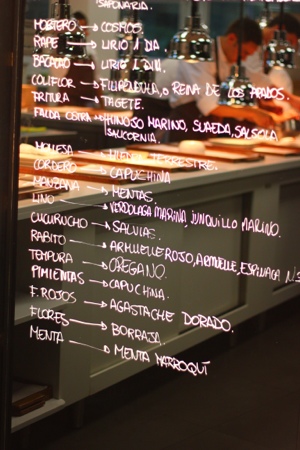 SAPONARIA.
MORTERO → COSMOS.
RAPE → LIRIO 1 DIA.
BACALAO → LIRIO 1 DIA.
COLIFLOR → FILIPENDULA, O REINA DE LOS PRADOS.
FRITURA → TAGETE.
FALDA COSTRA → HINOJO MARINO, SUAEDA, SALSOLA
SALICORNIA.
MOLLEJA → HIEDRA TERRESTRE.
CORDERO → CAPUCHINA
MANZANA → MENTAS.
LINO → VERDOLAGA MARINA, JUNQUILLO MARINO.
CUCURUCHO → SALVIAS.
RABITO → ARMUELLE ROSO, ARMUELLE, ESPINACA N.S
TEMPURA → OREGANO.
PIMIENTAS → CAPUCHINA.
F. ROJOS → AGASTACHE DORADO.
FLORES → BORRAJA.
MENTA → MENTA MARROQUÍ